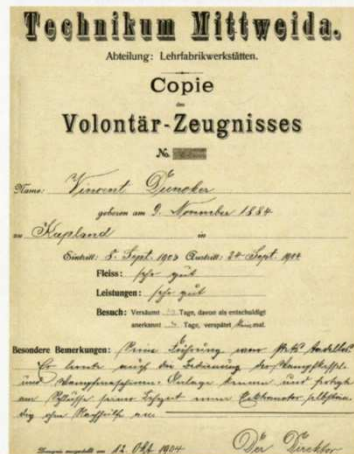 Technikum Mittweida.
Abteilung: Lehrfabrikwerkstätten.
Copie
des
Volontär-Zeugnisses
No.
Name: Vincent Duncker
geboren am 9. November 1884
zu Kapland in
Eintritt: 5. Sept. 1903 Austritt: 24 Sept. 1904
Fleiss: sehr gut
Leistungen: sehr gut
Besuch: Versäumt Tage, davon als entschuldigt
anerkannt Tage, verspätet mal.
Besondere Bemerkungen: Seine Führung war stets tadellos.
Er lernte auch die Bedienung der
und Dampfmaschinen-Anlage kennen und fertigte
am Schlusse seiner Lehrzeit einen selbstän-
dig ohne Nachhilfe an.
ausgestellt am 12. Okt. 1904 Der Direktor